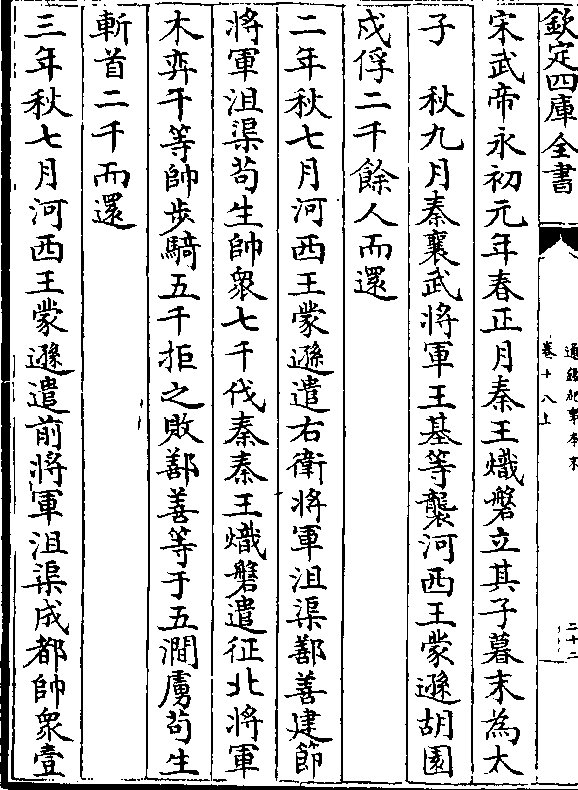 欽定四庫全書
通鑑紀事本末
卷十八上
二十二
宋武帝永初元年春正月秦王熾磐立其子暮末為太
子　秋九月秦襄武將軍王基等襲河西王蒙遜胡園
戍俘二千餘人而還
二年秋七月河西王蒙遜遣右衛將軍沮渠鄯善建節
將軍沮渠苟生帥衆七千伐秦秦王熾磐遣征北將軍
木弈干等帥步騎五千拒之敗鄯善等于五澗虜苟生
斬首二千而還
三年秋七月河西王蒙遜遣前將軍沮渠成都帥衆壹